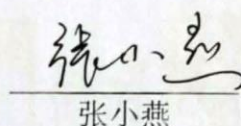 张小燕
张小燕